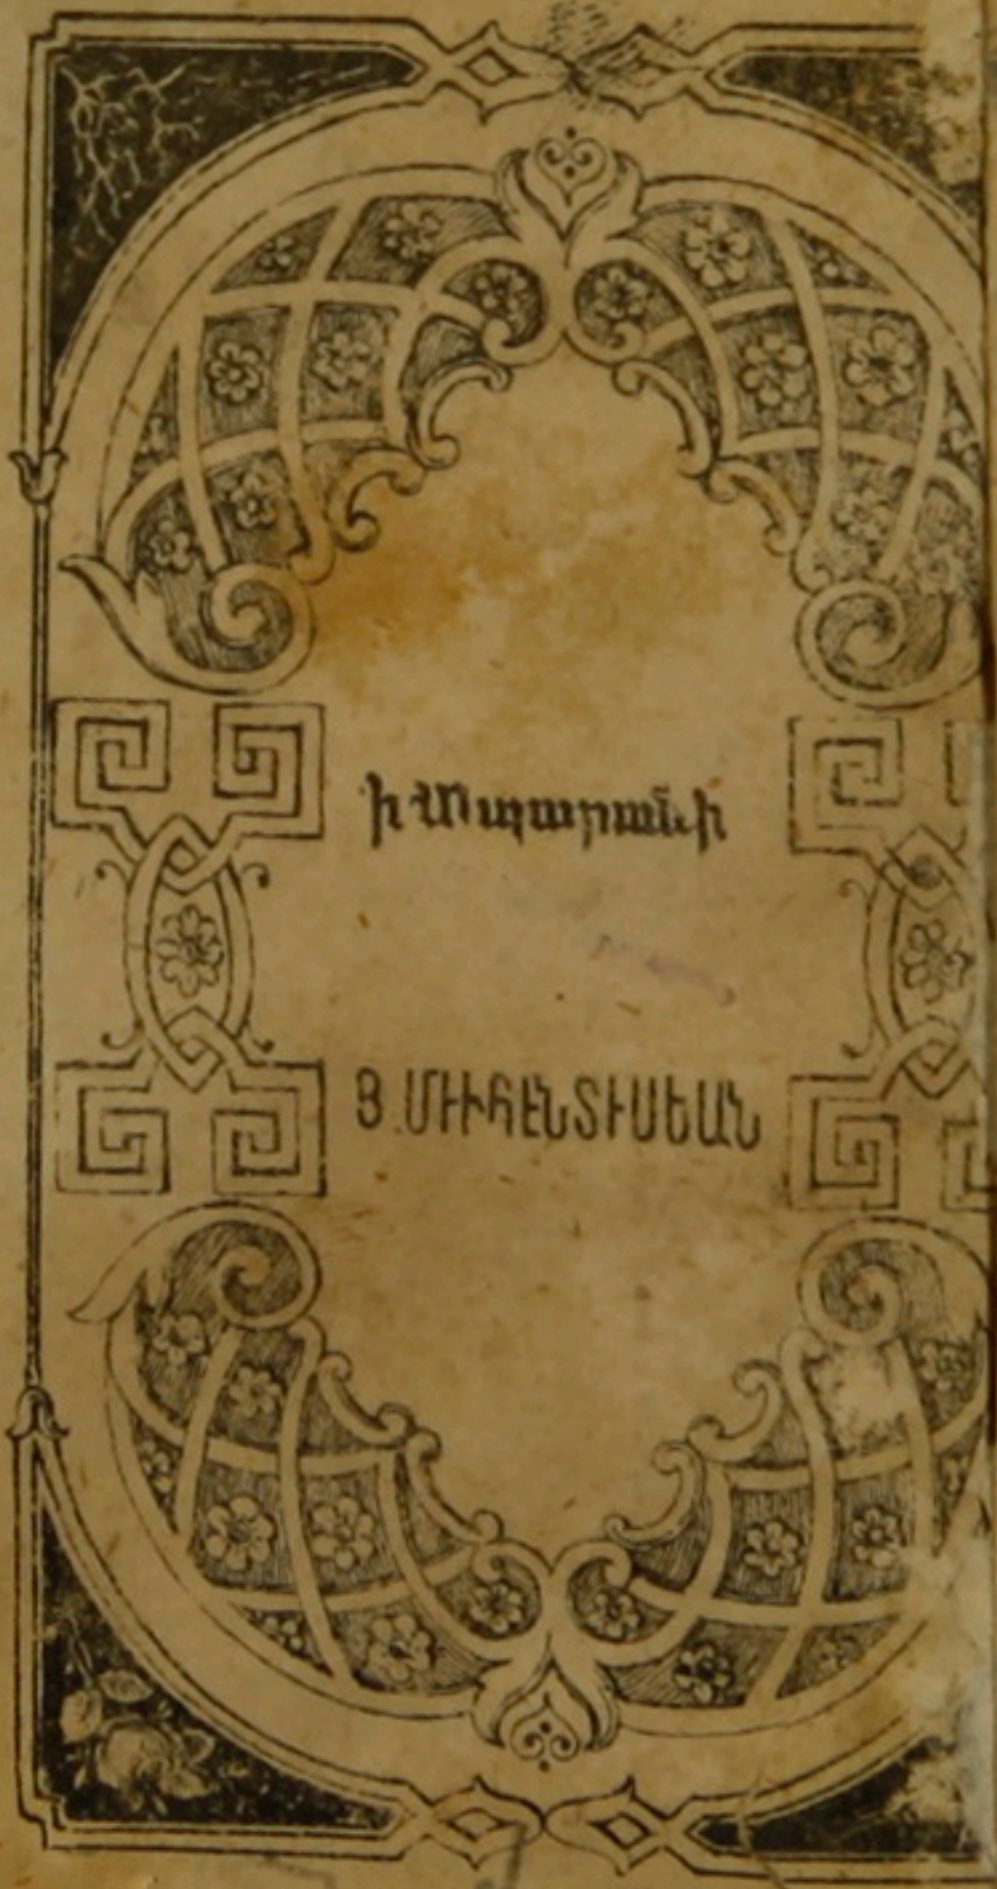 ի Տպարանի
Յ. ՄԻՒՀԷՆՏԻՍԵԱՆ